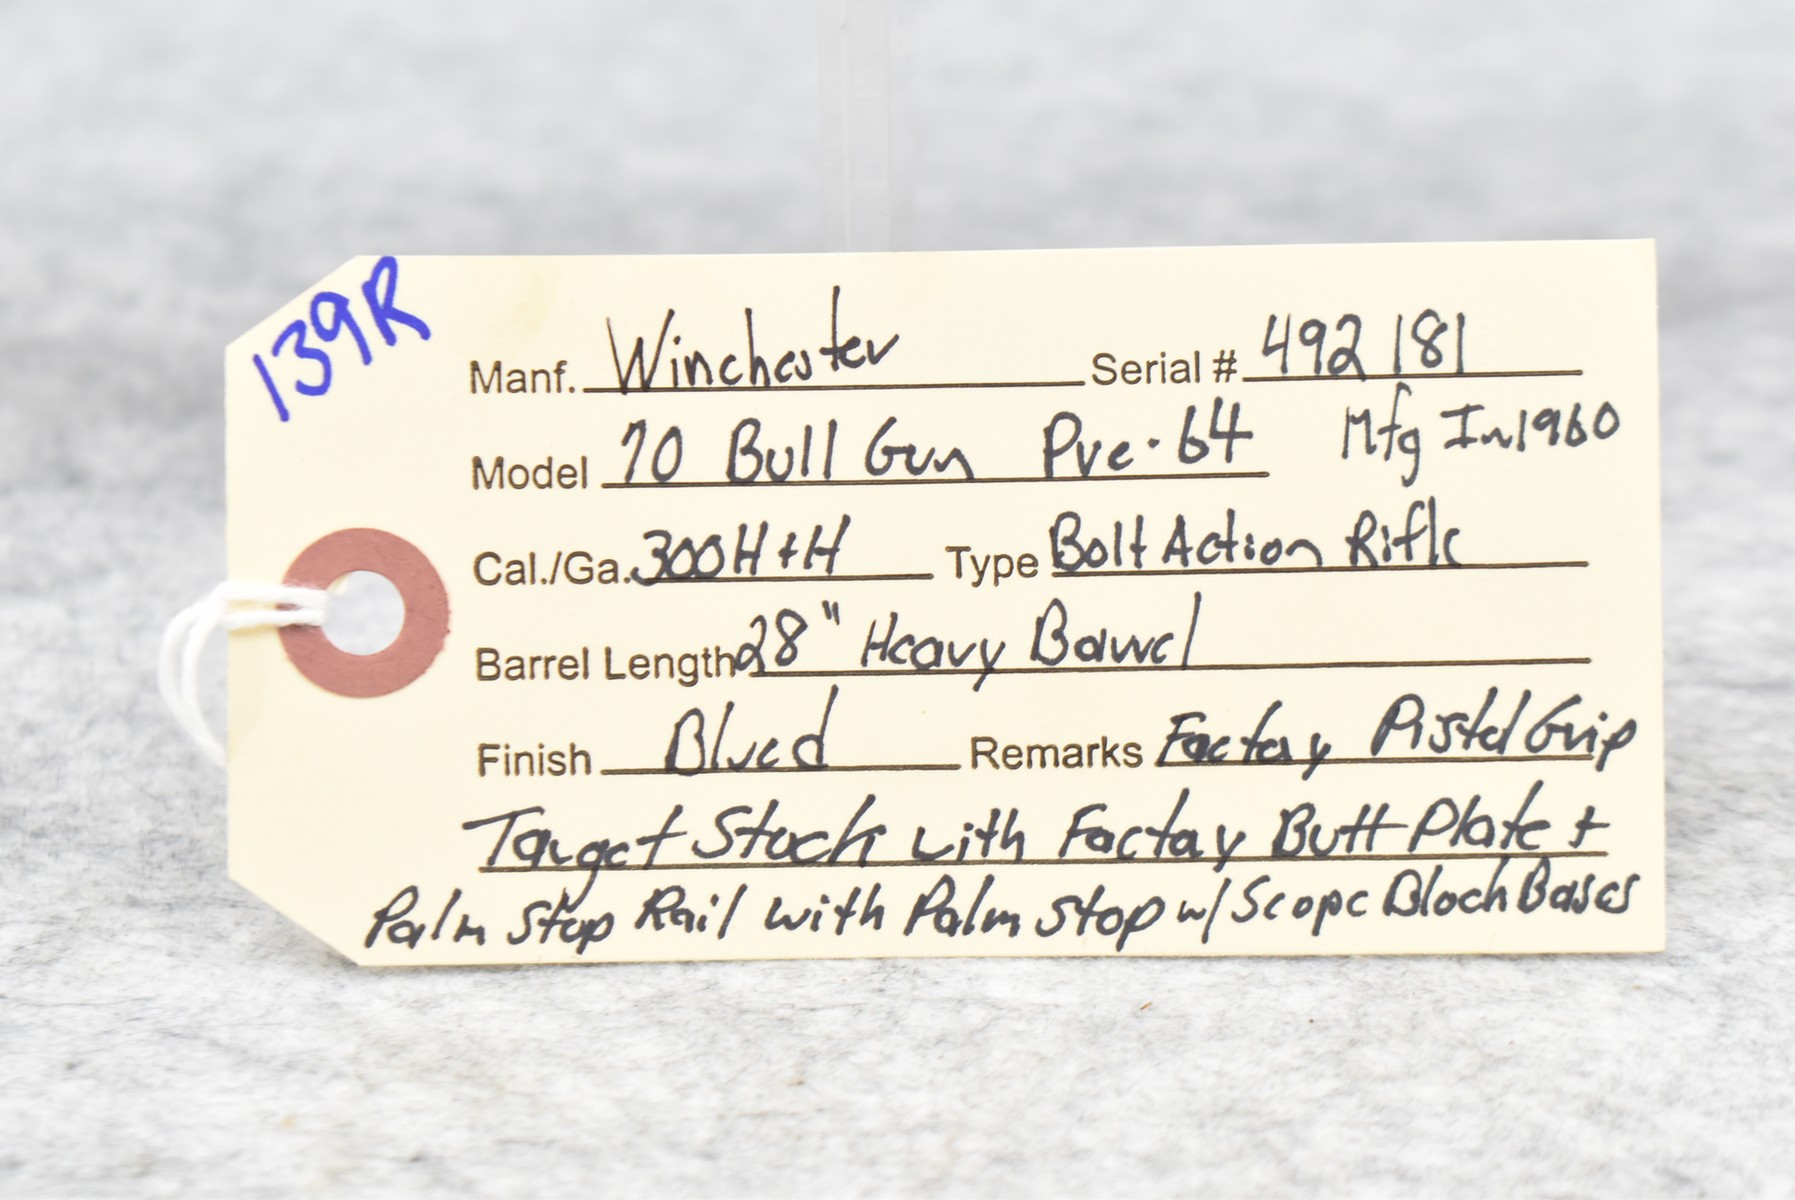 139R
Manf. Winchester Serial # 492181
Model 70 Bull Gun Pre-64 Mfg In 1960
Cal./Ga. 300 H+H Type Bolt Action Rifle
Barrel Length 28" Heavy Barrel
Finish Blued Remarks Factory Pistol Grip
Target Stock with Factory Butt Plate +
Palm Stop Rail with Palm Stop w/ Scope Block Bases